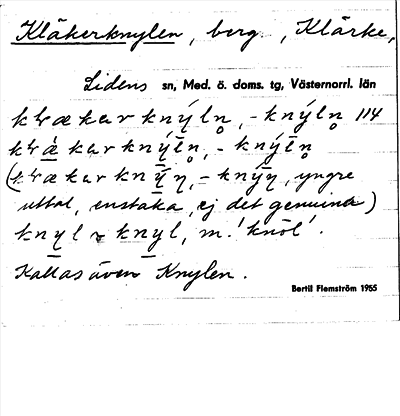 Kläkerknylen, berg, Klärke,
Lidens sn, Med. ö. doms. tg, Västernorrl. län
kƚækarkný́ln̥, -knýln̥ 114
kƚækarknýln̥, -knýln̥
(kƚækarknȳn̥, -knýn̥, yngre
uttal, enstaka, ej det genuina)
knyl ~ knyl, m. 'knöl'.
Kallas även Knylen.
Bertil Flemström 1955